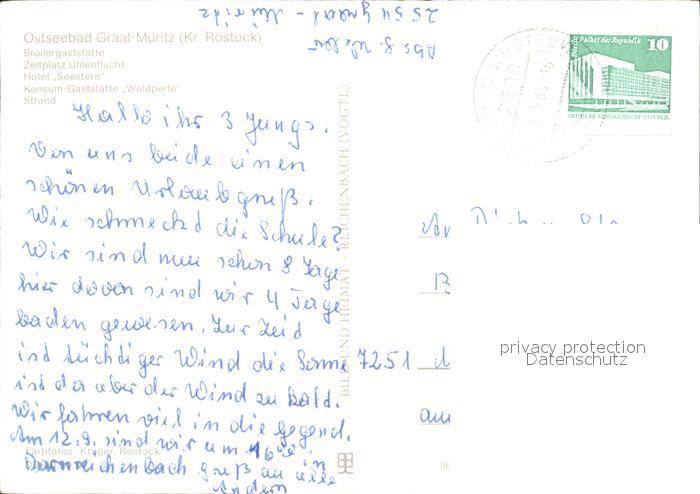 Ostseebad Graal-Müritz (Kr. Rostock)
Broilergaststätte
Zeltplatz Uhlenflucht
Hotel „Seestern"
Konsum-Gaststätte „Waldperle"
Strand
2554 Graal - Müritz
Abs. g.
Palast der Republik 10
DEUTSCHE DEMOKRATISCHE REPUBLIK
Hallo ihr 3 Jungs.
Von uns beide einen
schönen Urlaubsgruß.
Wie schmeckd die Schule?
Wir sind nun schon 8 Tage
hier davon sind wir 4 Tage
baden gewesen. Zur Zeid
isd tüchdiger Wind die Sonne
isd da aber der Wind zu kald.
Wir fahren viel in die gegend.
Am 12.9. sind wir um 16 in
Dornreichenbach gruß an alle
Andern
7251
An
au
BILD UND HEIMAT · REICHENBACH (VOGTL)
Farbfotos: Krüger, Rostock
privacy protection
Datenschutz